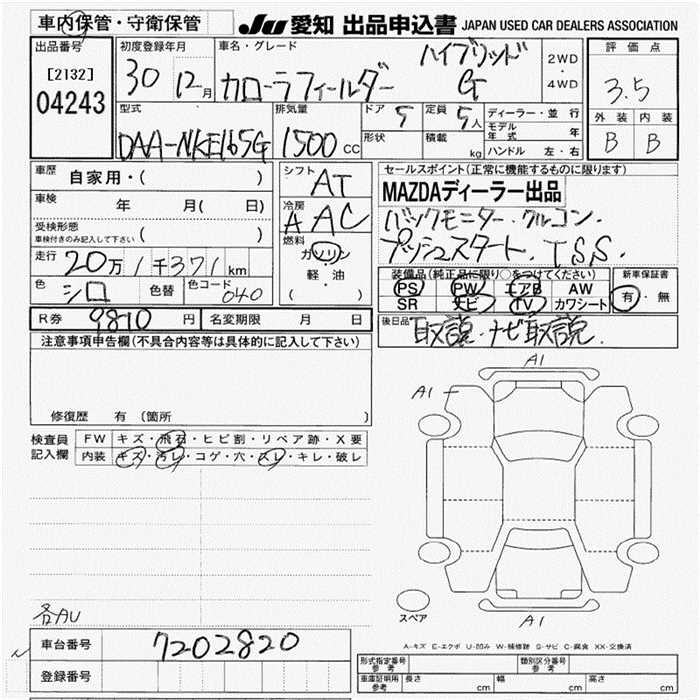 車内保管・守衛保管
JU 愛知 出品申込書 JAPAN USED CAR DEALERS ASSOCIATION
出品番号
[2132]
04243
初度登録年月
30 12月
車名・グレード
カローラフィールダー ハイブリッド G
2WD
・
4WD
評価点
3.5
外装 内装
B B
型式
DAA-NKE165G
排気量
1500 CC
ドア 5
形状
定員 5人
積載 kg
ディーラー・並行
モデル年式 年
ハンドル 左・右
車歴 自家用・( )
車検 年 月( 日)
受検形態
車検付きのみ記入して下さい ( )
走行 20万1千371km
色 シロ 色替 色コード 040
シフト AT
冷房 AAC
燃料
ガソリン
軽・油
( ・ )
セールスポイント(正常に機能するものに限ります)
MAZDAディーラー出品
バックモニター・クルコン・
プッシュスタート・T.S.S.
装備品(純正品に限り○をつけてください)
PS PW エアB AW
SR ナビ TV カワシート
新車保証書
有・無
R券 9810円 名変期限 月 日
後日品 取説・ナビ取説
注意事項申告欄(不具合内容等は具体的に記入して下さい)
修復歴 有(箇所 )
検査員記入欄
FW キズ・飛石・ヒビ割・リペア跡・X要
内装 キズ・汚レ・コゲ・穴・スレ・キレ・破レ
A1
A1
A1
スペア
各AU
車台番号 7202820
登録番号
A-キズ E-エクボ U-凹み W-補修跡 S-サビ C-腐食 XX-交換済
形式指定番号 参考 類別区分番号 参考
車庫証明用 参考 長さ cm 幅 cm 高さ cm